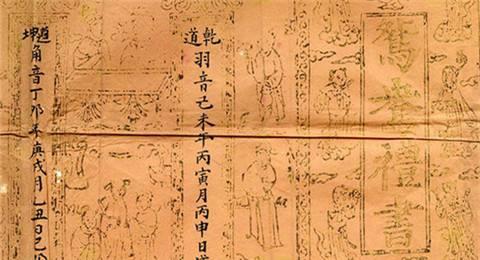 禮書
乾道羽音己未年丙寅月丙申日
坤道角音丁卯年庚戌月乙丑日己